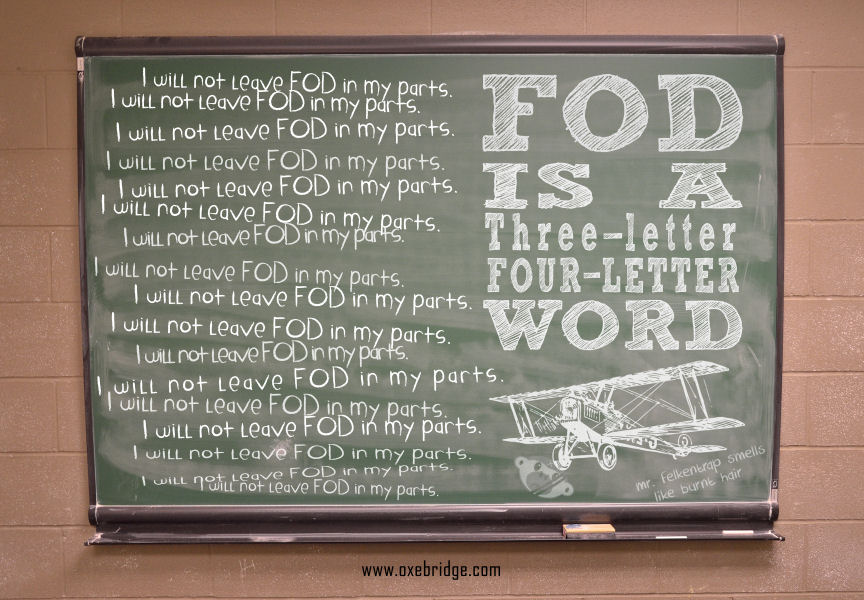 I will not leave FOD in my parts.
I will not leave FOD in my parts.
I will not leave FOD in my parts.
I will not leave FOD in my parts.
I will not leave FOD in my parts.
I will not leave FOD in my parts.
I will not leave FOD in my parts.
I will not leave FOD in my parts.
I will not leave FOD in my parts.
I will not leave FOD in my parts.
I will not leave FOD in my parts.
I will not leave FOD in my parts.
I will not leave FOD in my parts.
I will not leave FOD in my parts.
I will not leave FOD in my parts.
I will not leave FOD in my parts.
I will not leave FOD in my parts.
FOD
IS A
Three-letter
FOUR-LETTER
WORD
mr. felkentrap smells
like burnt hair
www.oxebridge.com